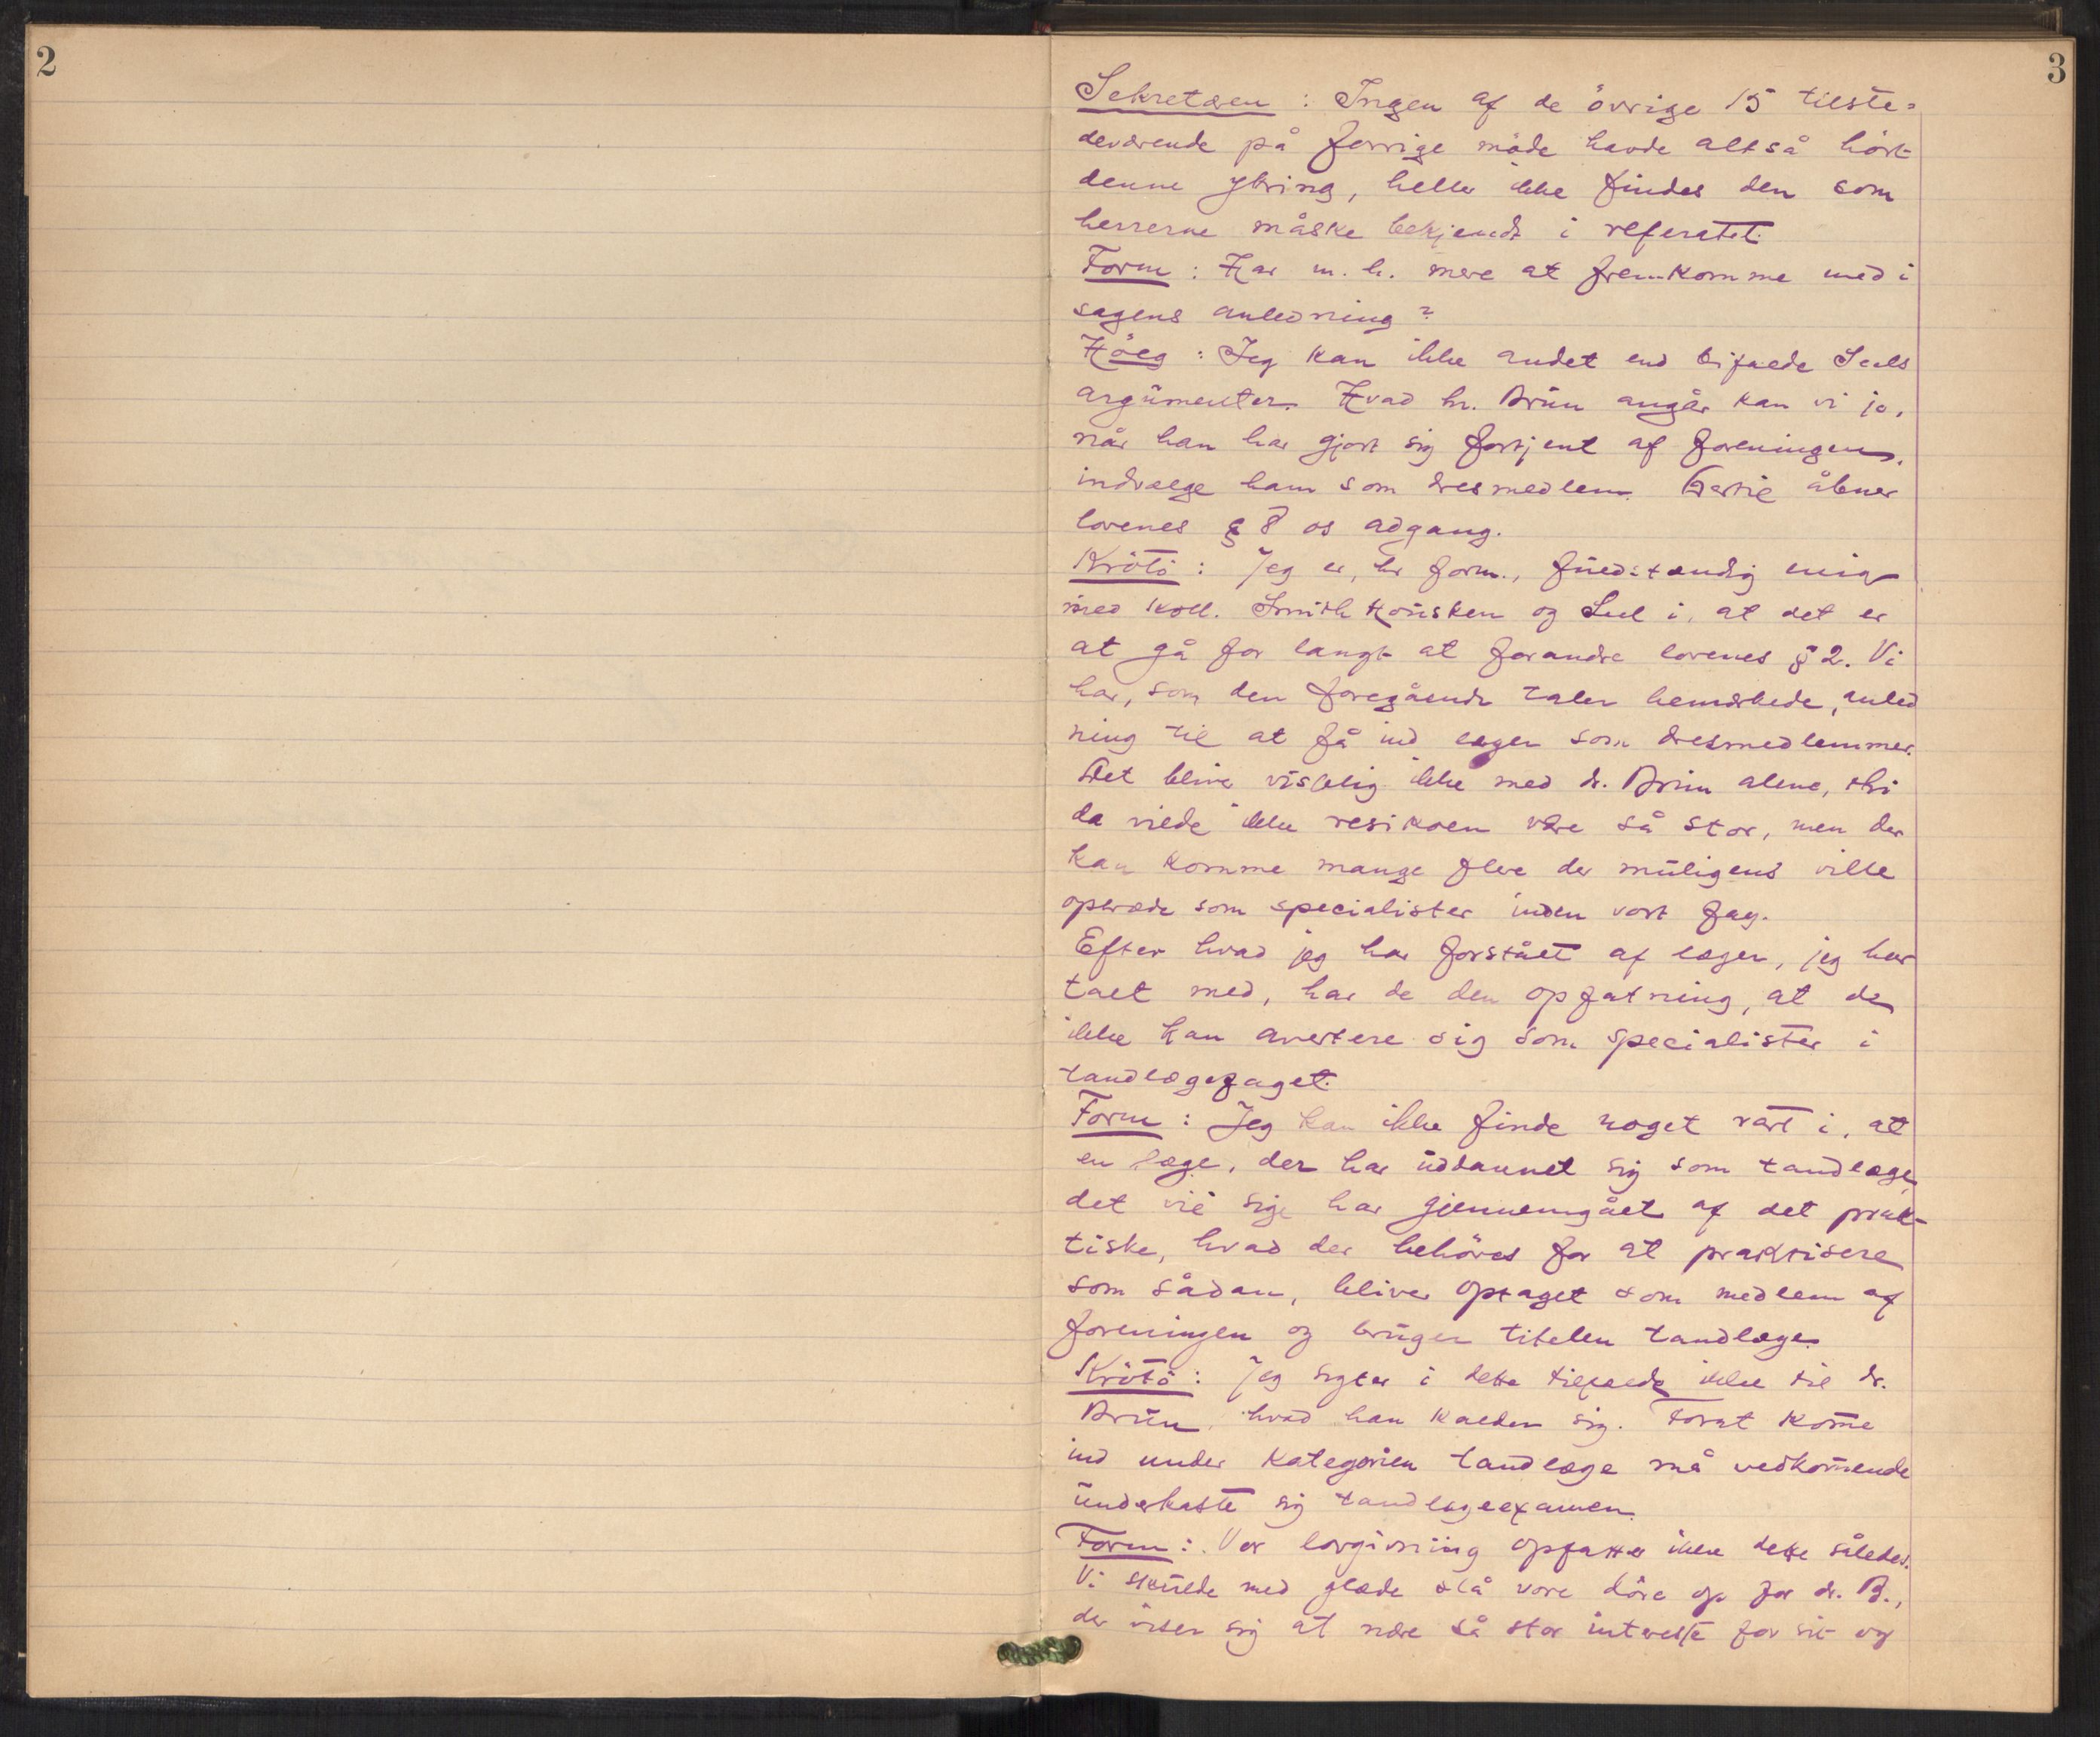 2
3
Sekretæren : Ingen af de övrige 15 tilste=
deværende på forrige möde havde altså hört
denne ytring, heller ikke findes den som
herrerne måske bekjendt i referatet.
Form : Har m. h. mere at fremkomme med i
sagens anledning ?
Höeg : Jeg kan ikke andet end bifalde Seels
argumenter. Hvad hr. Brün angår kan vi jo,
når han har gjort sig fortjent af foreningen,
indvælge ham som æresmedlem. Hertil åbner
lovenes § 8 os adgang.
Krötö : Jeg er, hr form., fuldstændig enig
med koll. Smith Housken og Seel i, at det er
at gå for langt at forandre lovenes § 2. Vi
har, som den foregående taler bemærkede, anled
ning til at få ind læger som æresmedlemmer.
Det bliver visselig ikke med dr. Brün alene, thi
da vilde ikke resikoen være så stor, men der
kan komme mange flere der muligens ville
optræde som specialister inden vort fag.
Efter hvad jeg har forstået af læger, jeg har
talt med, har de den opfatning, at de
ikke kan avertere sig som specialister i
tandlægefaget.
Form : Jeg kan ikke finde noget rart i, at
en læge, der har uddannet sig som tandlæge,
det vil sige har gjennemgået af det prak-
tiske, hvad der behöves for at praktisere
som sådan, bliver optaget som medlem af
foreningen og bruger titelen tandlæge.
Krötö : Jeg sigter i dette tilfælde ikke til dr.
Brün, hvad han kalder sig. Forat kom̄e
ind under kategorien tandlæge må vedkom̄ende
underkaste sig tandlægeexamen.
Form : Vor lovgivning opfatter ikke dette således.
Vi skulde med glæde slå vore döre op for dr. B.,
der viser sig at nære så stor interesse for sit og